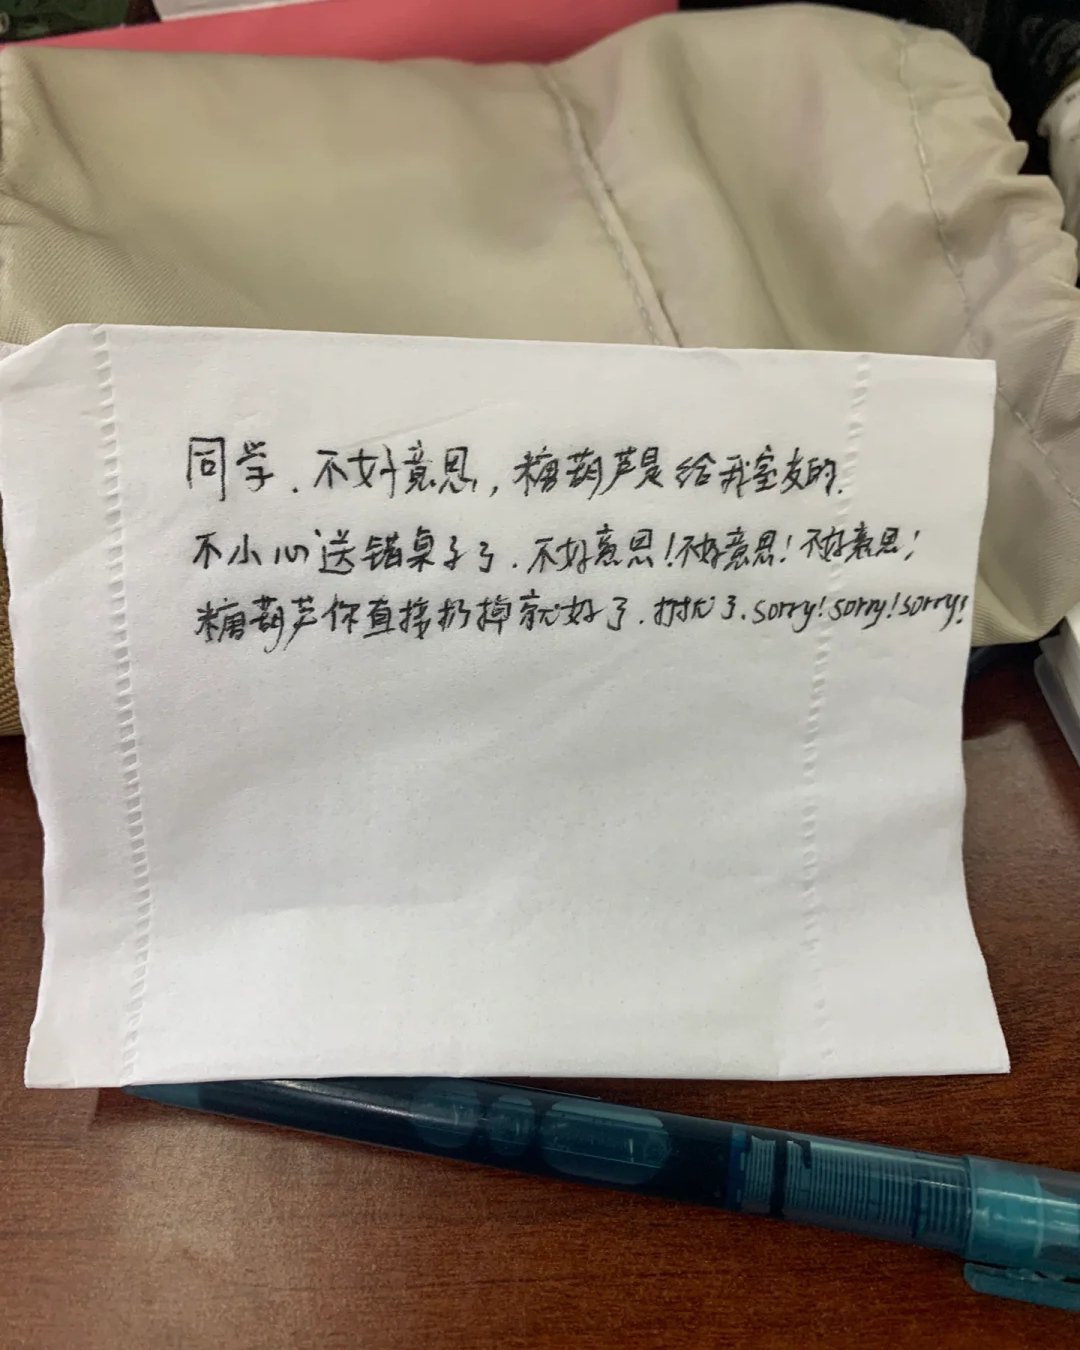 同学.不好意思,糖葫芦是给我室友的.
不小心送错桌子了.不好意思!不好意思!不好意思!
糖葫芦你直接扔掉就好了.打扰了.sorry!sorry!sorry!